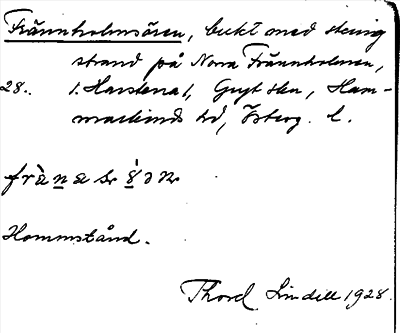 Frännholmsören, bukt med stenig
strand på Norra Frännholmen,
28. i. Harstena s, Gryt skn, Ham-
markinds hd, Österg. l.
Hommstånd.
Thord Lindell 1928